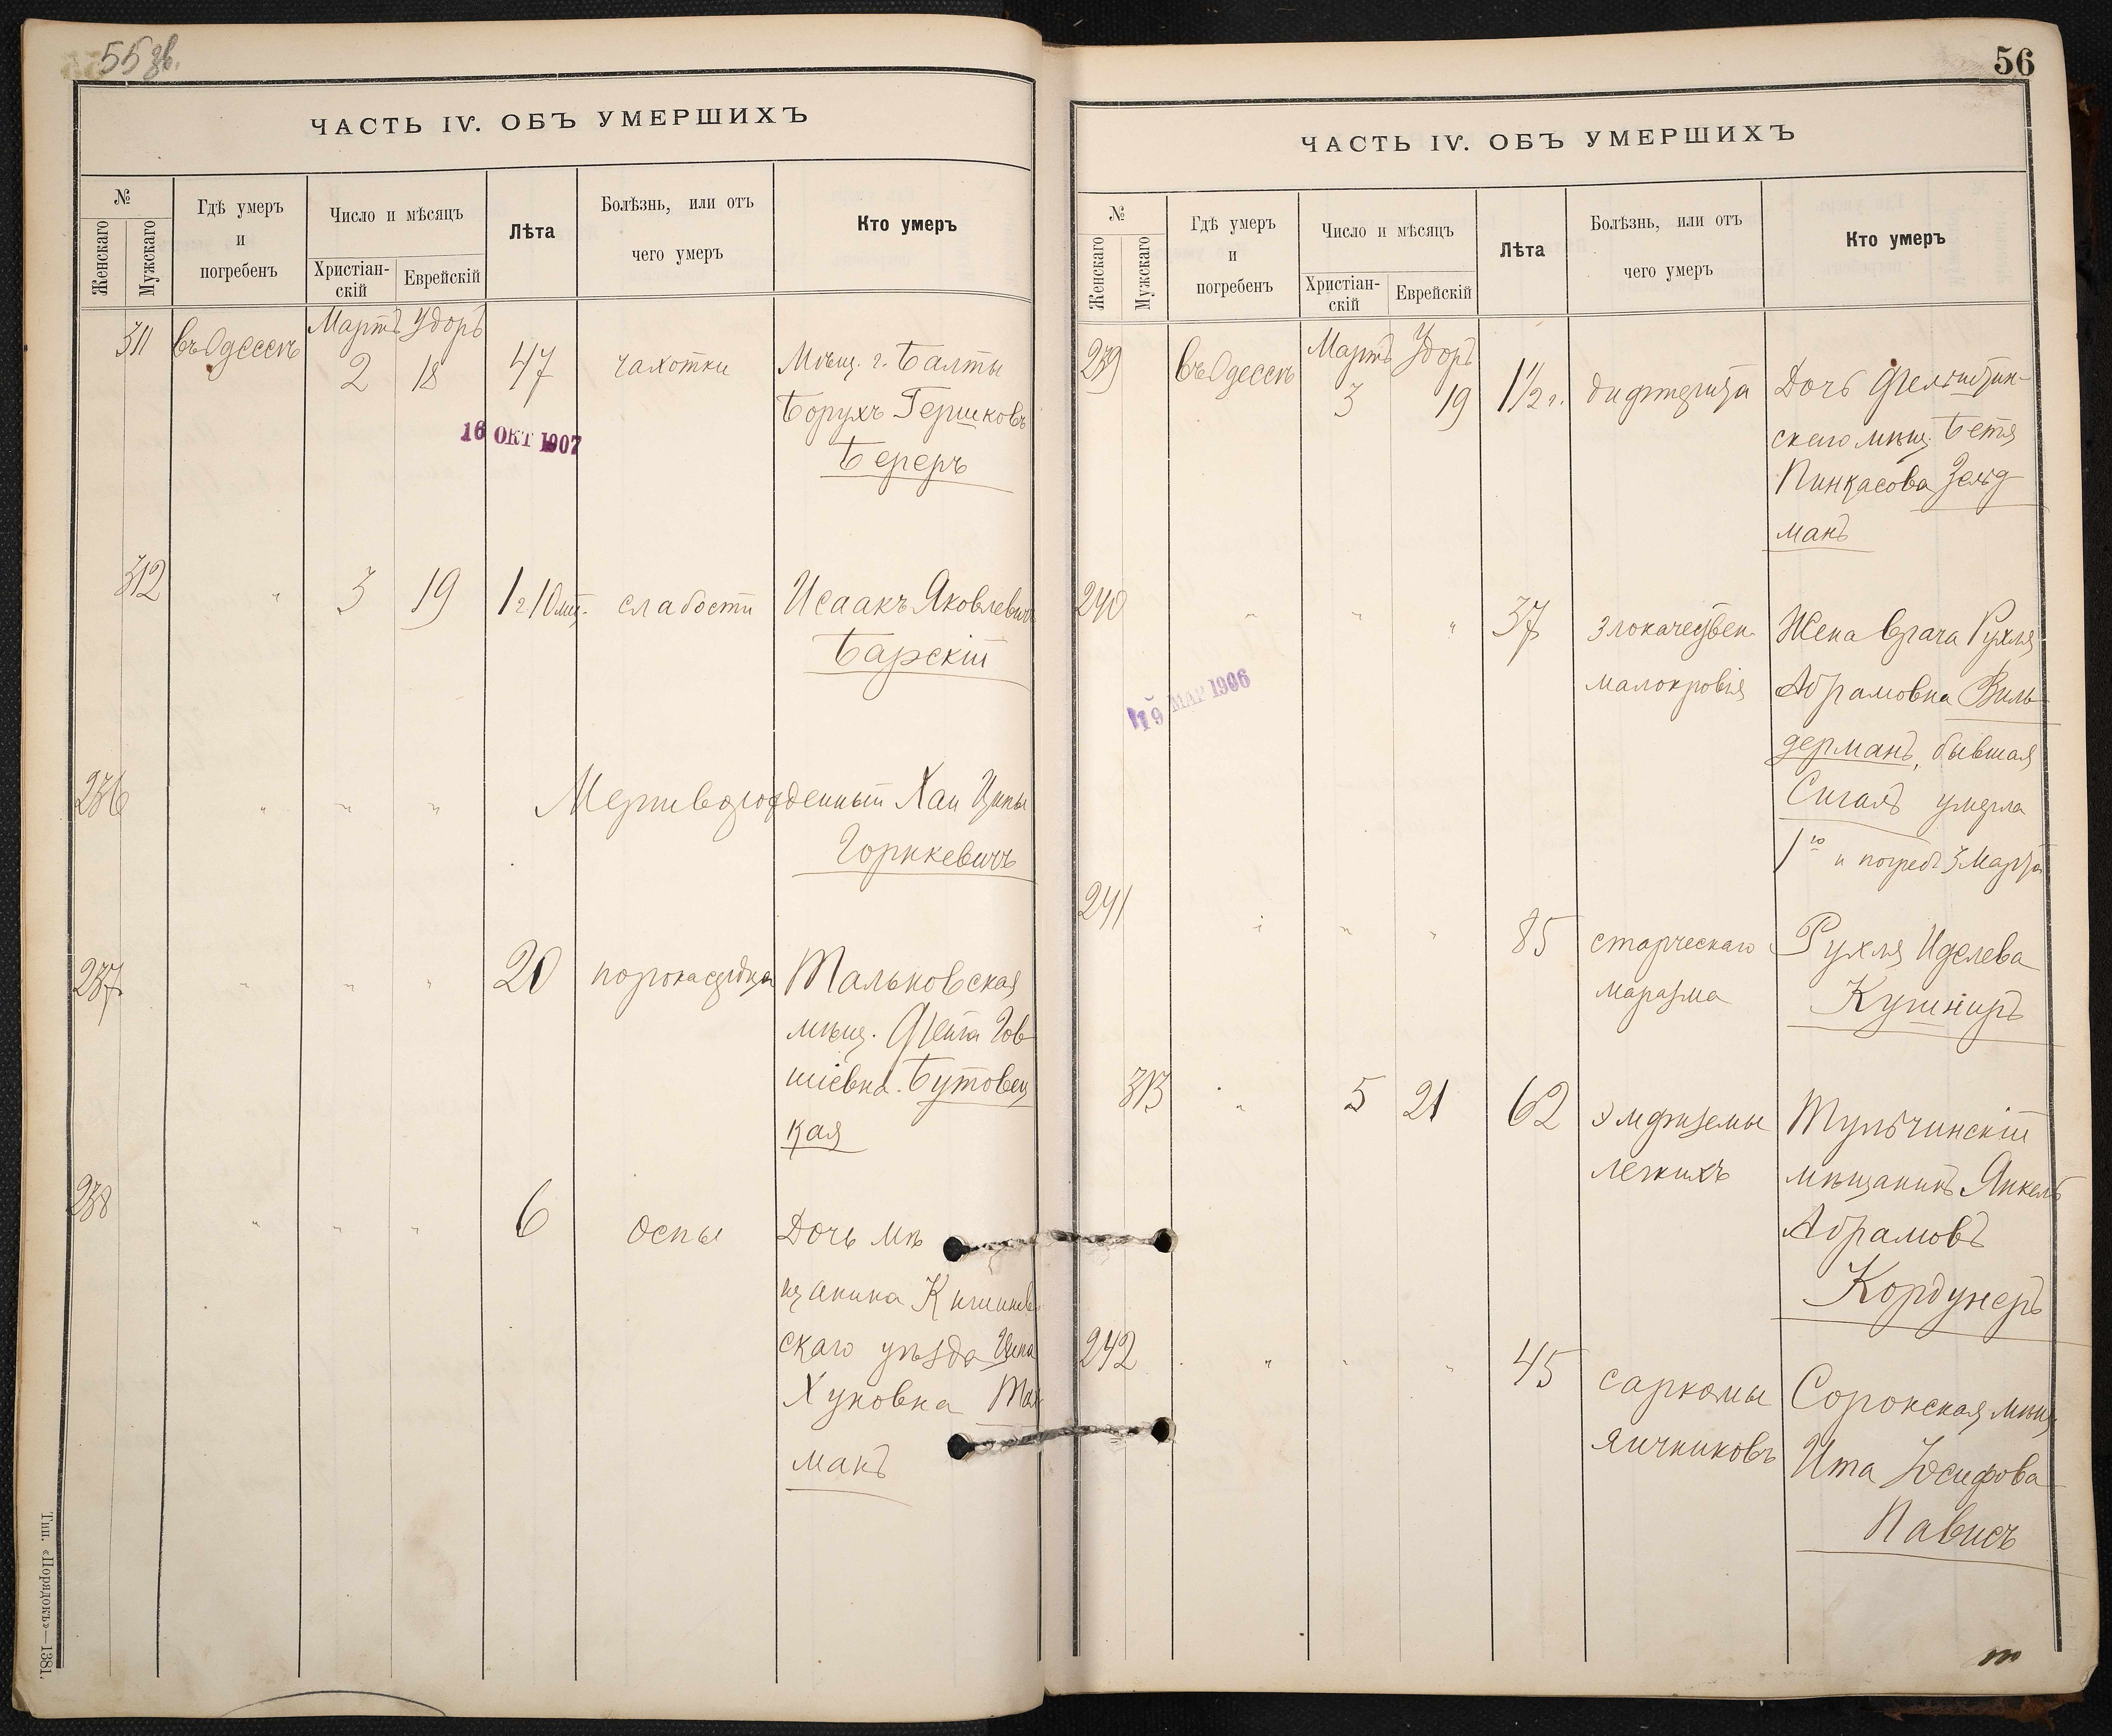 55 зв.
ЧАСТЬ IV. ОБЪ УМЕРШИХЪ
№
Женскаго
Мужскаго
Гдѣ умеръ
и
погребенъ
Число и мѣсяцъ
Христіан-
скій
Еврейскій
Лѣта
Болѣзнь, или отъ
чего умеръ
Кто умеръ
Мартъ Удоръ
311 въ Одессѣ 2 18 47 чахотки Мѣщ. г. Балты
Борухъ Гершковъ
16 ОКТ 1907
Береръ
312 " 3 19 1 г. 10 мц. слабости Исаакъ Яковлевичъ
Барскій
236 " " " Мертворожденный Хаи Ципы
Горнкевичъ
237 " " " 20 порока сердца Тальновская
мѣщ. Фейга Гов-
шіевна Бутовец
кая
238 " " " 6 оспы Дочь мѣ
щанина Кишинев
скаго уѣзда
Хуновна
манъ
Тип. «Порядокъ»—1381.
56
ЧАСТЬ IV. ОБЪ УМЕРШИХЪ
№
Женскаго
Мужскаго
Гдѣ умеръ
и
погребенъ
Число и мѣсяцъ
Христіан-
скій
Еврейскій
Лѣта
Болѣзнь, или отъ
чего умеръ
Кто умеръ
Мартъ Удоръ
239 въ Одессѣ 3 19 1 1/2 г. дифтерита Дочь Фельштин-
скаго мѣщ. Бетя
Пинкасова Зельд
манъ
240 " " " 37 злокачествен. Жена врача Рухля
малокровія Абрамовна Виль
19 МАР 1906
дерманъ, бывшая
Сигалъ умерла
1го и погреб. 3 Марта
241 " " " 85 старческаго Рухля Иделева
маразма Кушниръ
313 " 5 21 62 эмфиземы Тульчинскій
легкихъ мѣщанинъ Янкель
Абрамовъ
Кордунеръ
242 " " " 45 саркомы Сорокская мѣщ.
яичниковъ Ита Іосифова
Пависъ